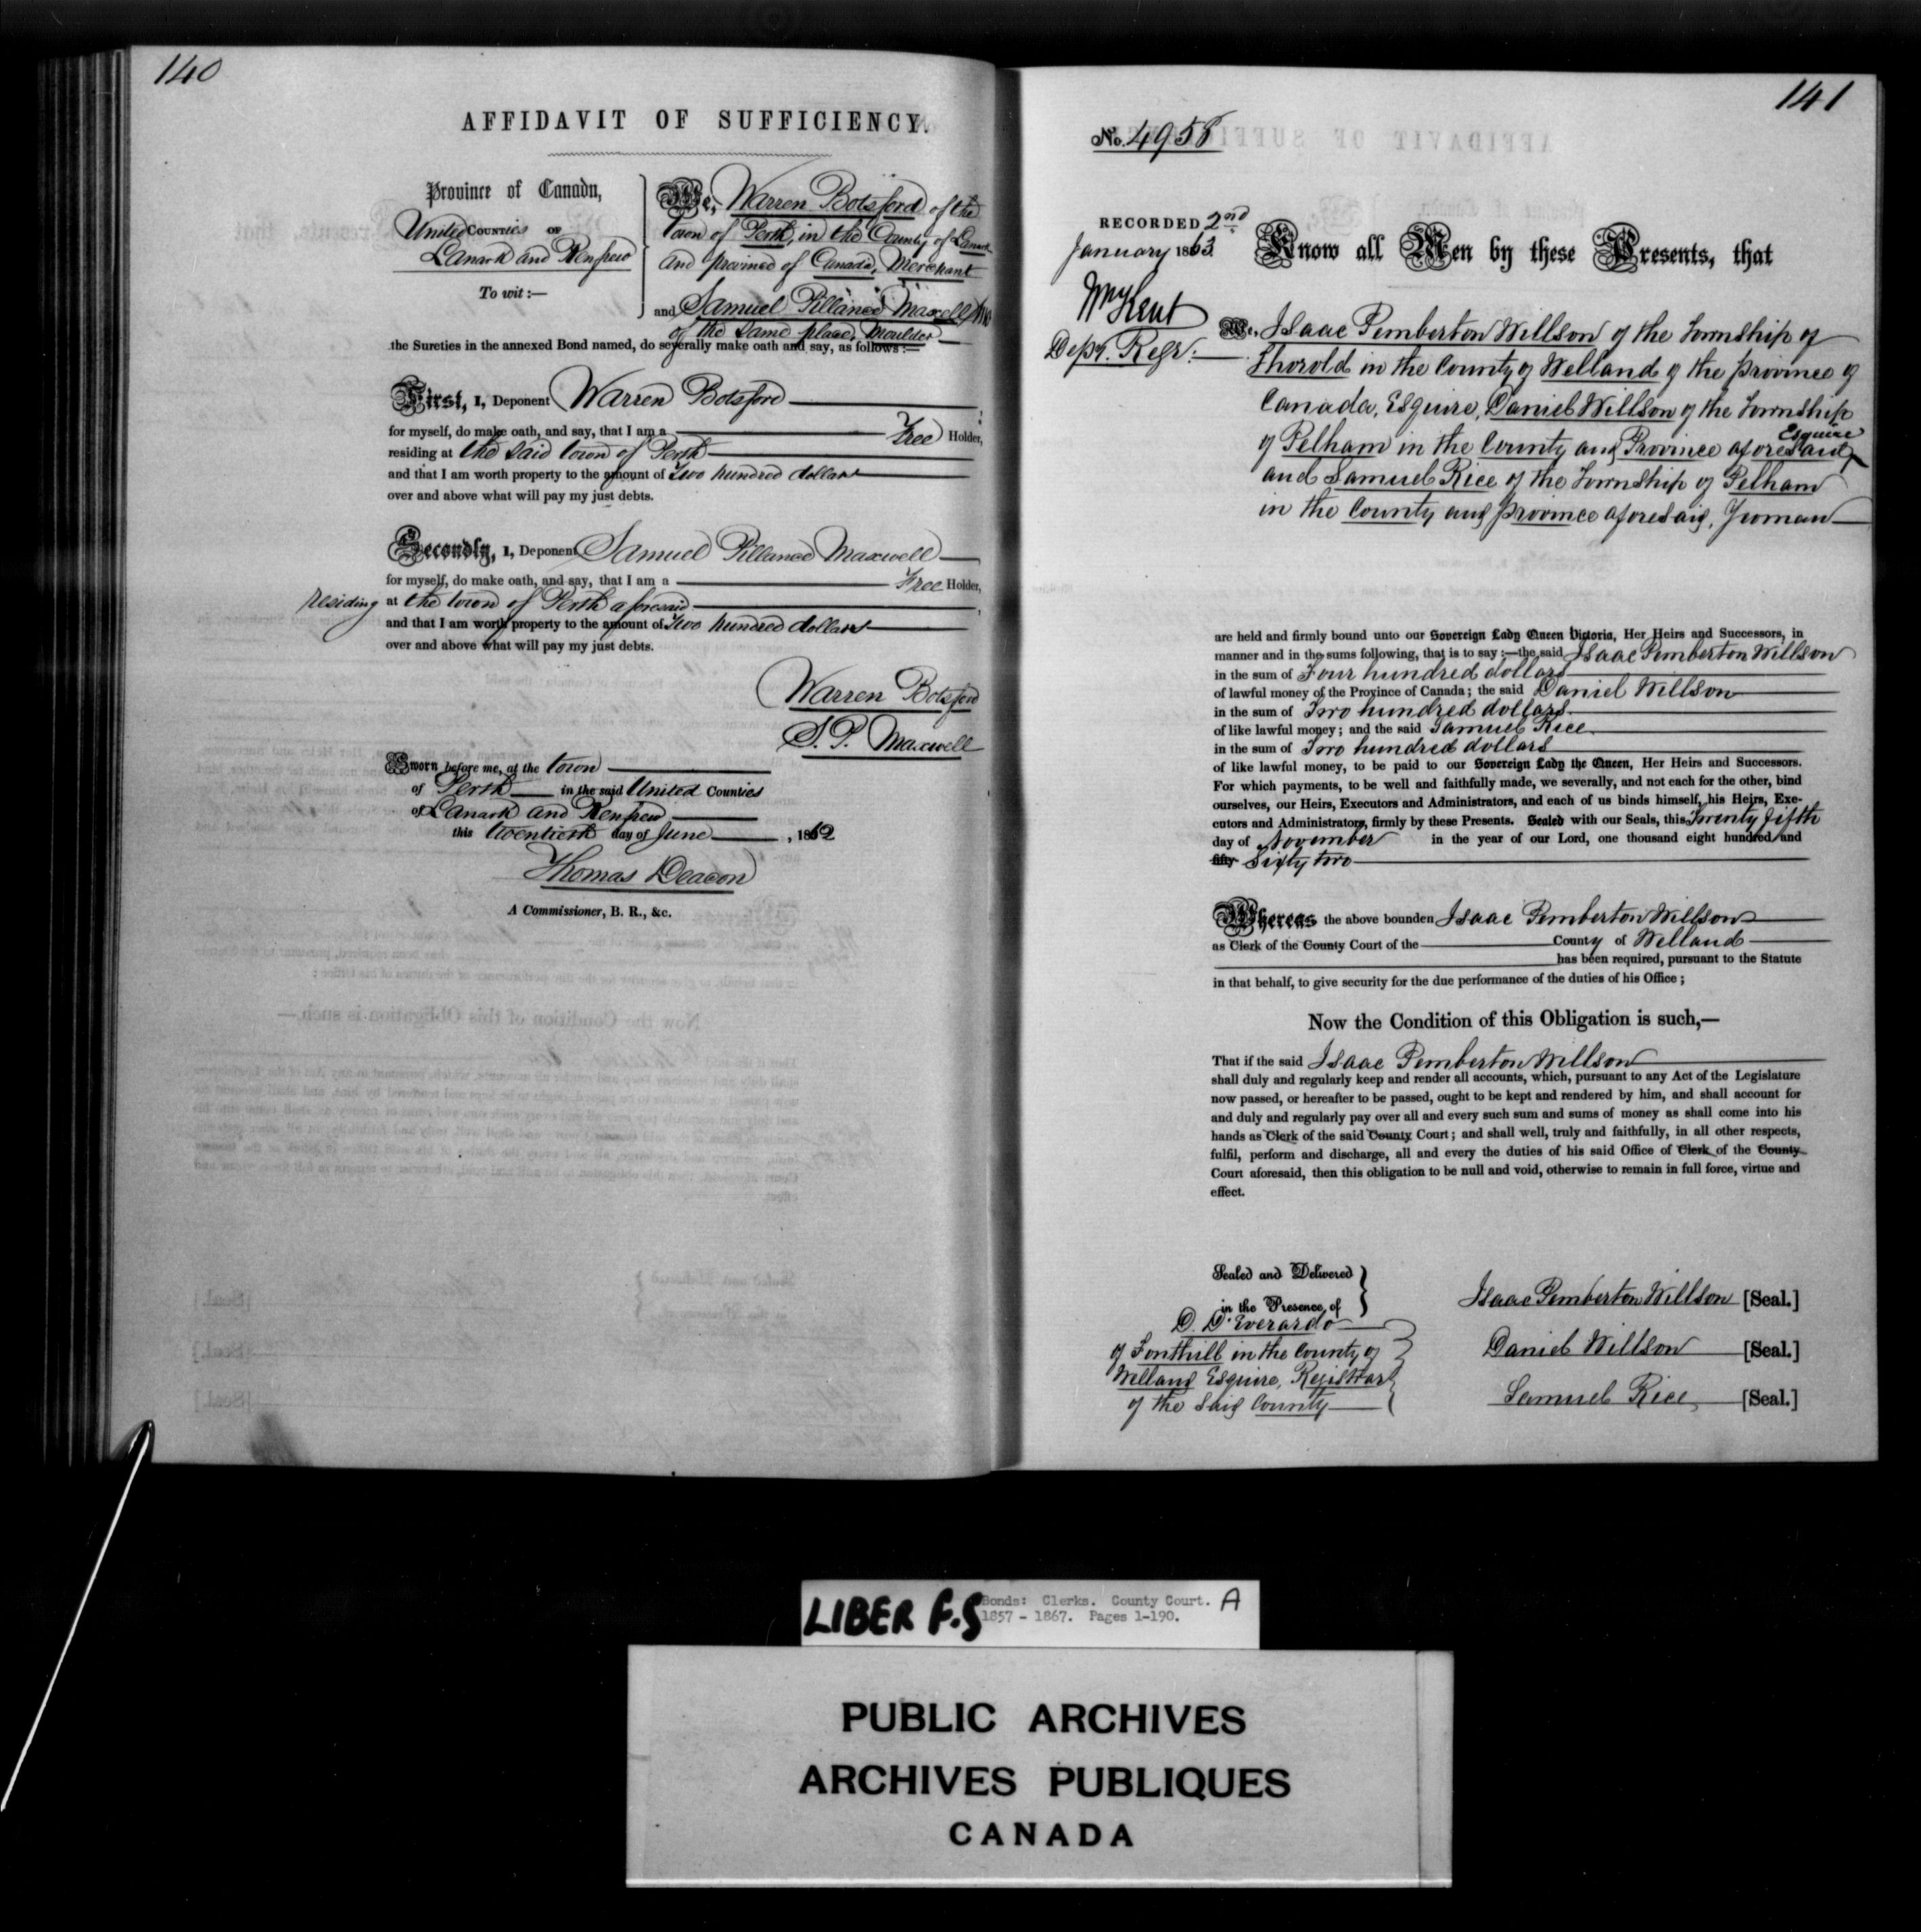 140
AFFIDAVIT OF SUFFICIENCY.
Province of Canada,
United COUNTIES OF
Lanark and Renfrew
To wit:—
We, Warren Botsford of the
town of Perth, in the County of Lanark
and province of Canada, Merchant
and Samuel Pillance Maxwell
of the same place, Moulder
the Sureties in the annexed Bond named, do severally make oath and say, as follows:—
First, I, Deponent Warren Botsford
for myself, do make oath, and say, that I am a Free Holder,
residing at the said town of Perth
and that I am worth property to the amount of Two hundred dollars
over and above what will pay my just debts.
Secondly, I, Deponent Samuel Pillance Maxwell
for myself, do make oath, and say, that I am a Free Holder,
residing at the town of Perth aforesaid
and that I am worth property to the amount of Two hundred dollars
over and above what will pay my just debts.
Warren Botsford
S. P. Maxwell
Sworn before me, at the town
of Perth in the said United Counties
of Lanark and Renfrew
this twentieth day of June, 1862
Thomas Deacon
A Commissioner, B. R., &c.
141
No. 4958
RECORDED 2nd
January 1863
Wm Kent
Depy. Regr.
Know all Men by these Presents, that
We, Isaac Pemberton Willson of the Township of
Thorold in the County of Welland of the province of
Canada, Esquire, Daniel Willson of the Township
of Pelham in the County and Province aforesaid Esquire
and Samuel Rice of the Township of Pelham
in the County and province aforesaid, Yeoman
are held and firmly bound unto our Sovereign Lady Queen Victoria, Her Heirs and Successors, in
manner and in the sums following, that is to say:—the said Isaac Pemberton Willson
in the sum of Four hundred dollars
of lawful money of the Province of Canada; the said Daniel Willson
in the sum of Two hundred dollars.
of like lawful money; and the said Samuel Rice
in the sum of Two hundred dollars
of like lawful money, to be paid to our Sovereign Lady the Queen, Her Heirs and Successors.
For which payments, to be well and faithfully made, we severally, and not each for the other, bind
ourselves, our Heirs, Executors and Administrators, and each of us binds himself, his Heirs, Exe-
cutors and Administrators, firmly by these Presents. Sealed with our Seals, this Twenty fifth
day of November in the year of our Lord, one thousand eight hundred and
fifty Sixty two
Whereas the above bounden Isaac Pemberton Willson
as Clerk of the County Court of the County of Welland
has been required, pursuant to the Statute
in that behalf, to give security for the due performance of the duties of his Office;
Now the Condition of this Obligation is such,—
That if the said Isaac Pemberton Willson
shall duly and regularly keep and render all accounts, which, pursuant to any Act of the Legislature
now passed, or hereafter to be passed, ought to be kept and rendered by him, and shall account for
and duly and regularly pay over all and every such sum and sums of money as shall come into his
hands as Clerk of the said County Court; and shall well, truly and faithfully, in all other respects,
fulfil, perform and discharge, all and every the duties of his said Office of Clerk of the County
Court aforesaid, then this obligation to be null and void, otherwise to remain in full force, virtue and
effect.
Sealed and Delivered
in the Presence of
D. D'Everardo
of Fonthill in the County of
Welland Esquire, Registrar
of the said County
Isaac Pemberton Willson [Seal.]
Daniel Willson [Seal.]
Samuel Rice [Seal.]
LIBER F.S
Bonds: Clerks. County Court. A
1857 - 1867. Pages 1-190.
PUBLIC ARCHIVES
ARCHIVES PUBLIQUES
CANADA